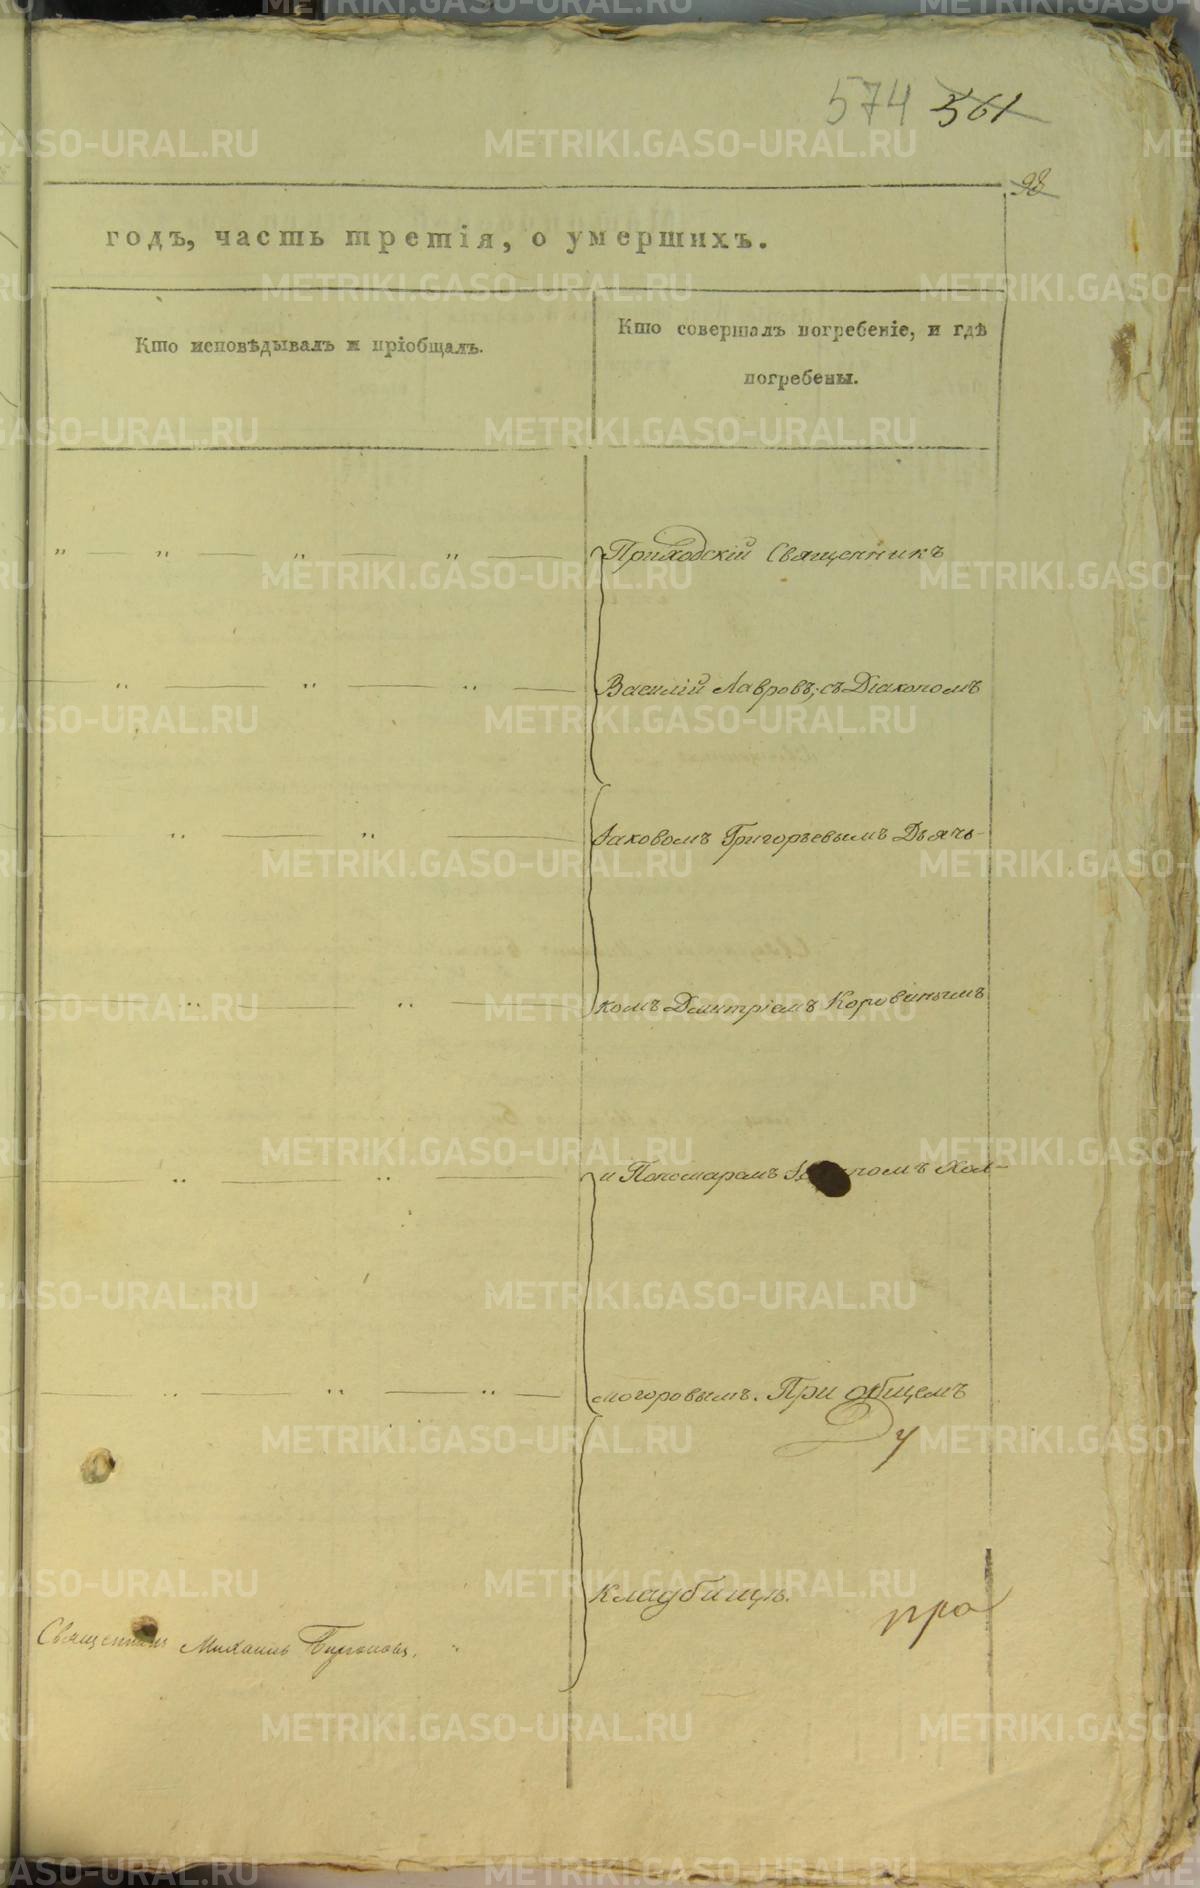 574 561
98
годъ, часть третія, о умершихъ.
Кто исповѣдывалъ и пріобщалъ.
Кто совершалъ погребеніе, и гдѣ
погребены.
Приходскій Священникъ
Василій Лавровъ; съ Діакономъ
Іаковомъ Григорьевымъ Дьячь-
комъ Дмитріемъ Коровинымъ
и Пономаремъ Хол-
могоровымъ. При общемъ
Ду
кладбищѣ.
пра
Священникъ Михаилъ
METRIKI.GASO-URAL.RU